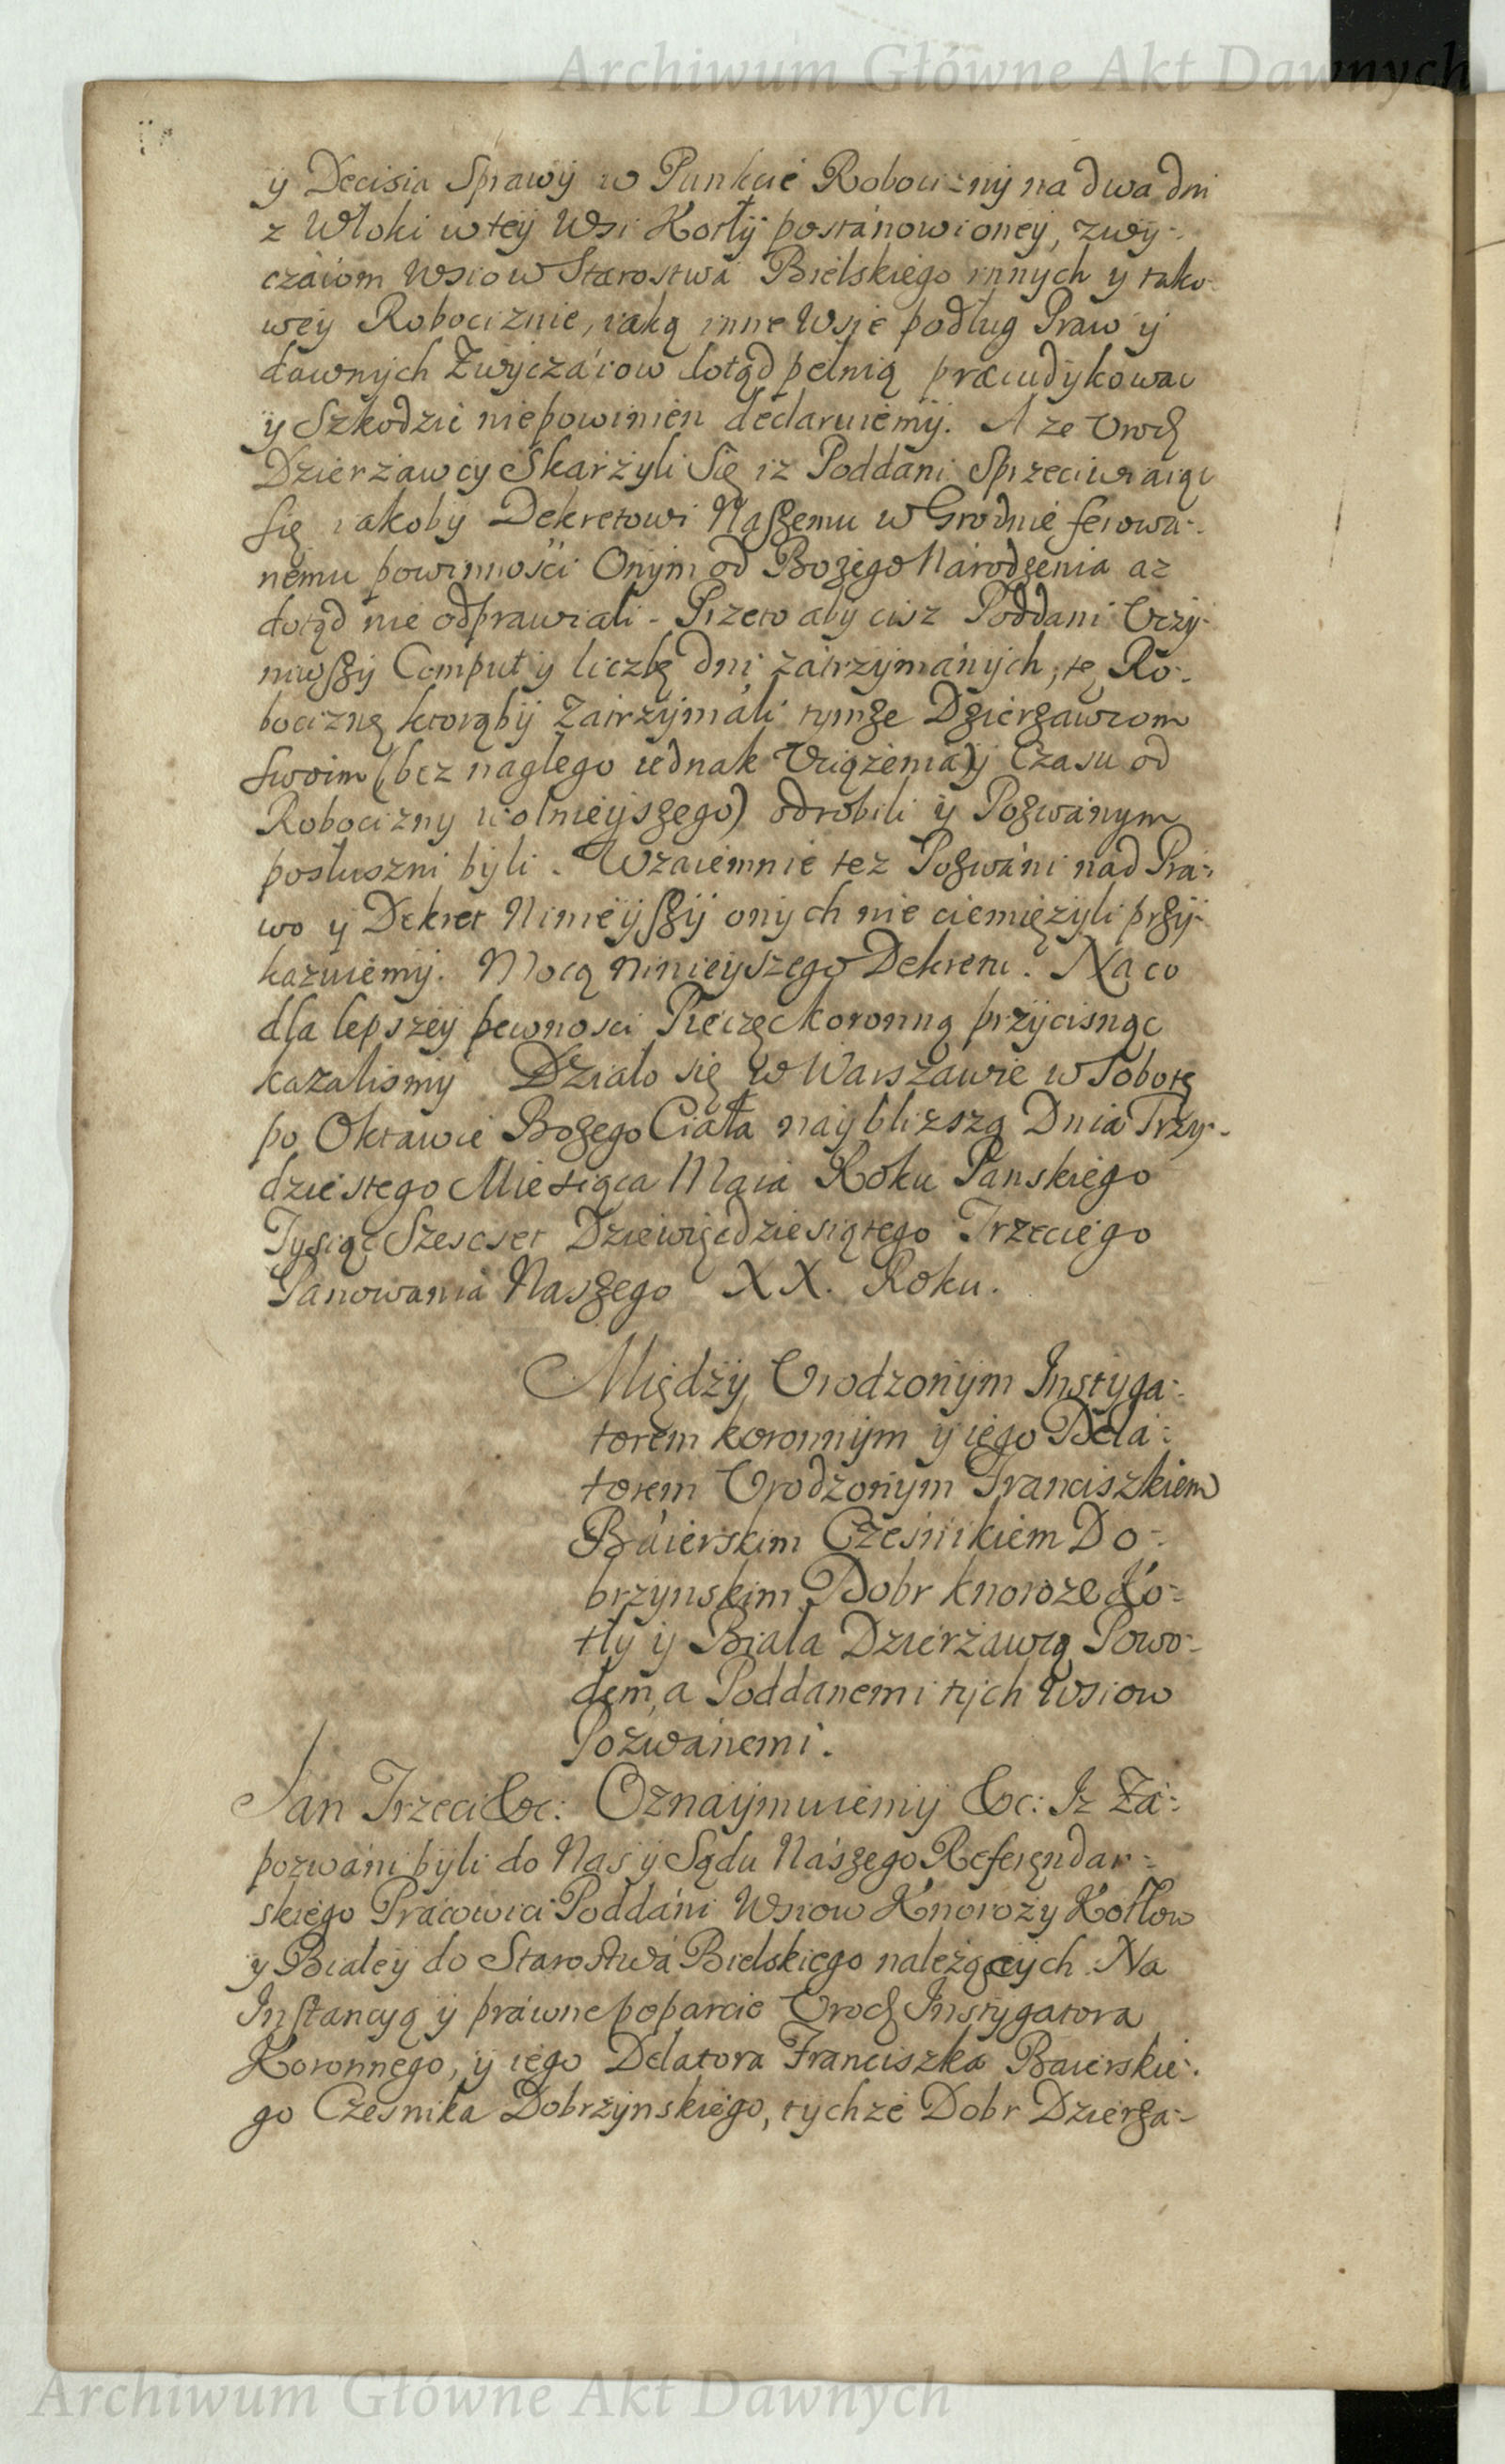 Archiwum Główne Akt Dawnych
ÿ Decisia Sprawÿ w Punkcie Robociznÿ na dwa dni
z Włoki w teÿ Wsi Kotłÿ postánowioneÿ, zwÿ-
czáiom Wsiow Starostwá Bielskiego innych y tako
weÿ Robociznie, iaką inne Wsie podług Praw ÿ
dawnÿch Zwÿczáiow dotąd pełnią præiudÿkowac
ÿ Szkodzić niepowinien declaruiemÿ. A ze Urodz
Dzierżawcÿ Skarżÿli Się iz Poddani Sprzeciwiaiąc
się iakobÿ Dekretowi Naszemu w Grodnie ferowá-
nemu powinnosci Onÿm od Bozego Národzenia az
dotąd nie odprawiali - Przeto abÿ cisz Poddani Uczÿ-
niwszÿ Comput ÿ liczbę dni zátrzÿmánÿch, tę Ro-
bociznę ktorąbÿ Zatrzÿmáli tymze Dzierzawcom
swoim (bez nagłego iednak Uciązenia ÿ Czasu od
Robocizny wolnieÿszego) odrobili ÿ Pozwánym
posłuszni bÿli. Wzaiemnie tez Pozwáni nad Prá-
wo ÿ Dekret Ninieÿszÿ onÿch nie ciemięzÿli przÿ-
kazuiemÿ. Mocą ninieÿszego Dekretu. Na co
dla lepszeÿ pewnosci Pieczęc koronną przÿcisnąc
kazalismÿ Działo się w Warszawie w Sobotę
po Oktawie Bozego Ciała naÿblizszą Dnia Trzy-
dziestego Miesiąca Maia Roku Panskiego
Tysiąc Szescset Dziewięcdziesiątego Trzeciego
Panowania Naszego XX. Roku.
Międzÿ Urodzonÿm Instyga-
torem koronnÿm ÿ iego Delá-
torem Urodzonÿm Franciszkiem
Báierskim Cześnikiem Do-
brzynskim Dobr Knoroze Ko-
tły ÿ Biała Dzierżawcą Powo-
dem, a Poddanemi tÿch Wsiow
Pozwánemi.
Jan Trzeci &c: Oznaÿmuiemÿ &c: Iz Zá-
pozwáni bÿli do Nas ÿ Sądu Nászego Referęndar-
skiego Prácowici Poddáni Wsiow Knorozy Kotłow
ÿ Białeÿ do Starostwá Bielskiego należących Na
Instancyą ÿ práwne poparcie Urodz Instygatora
Koronnego, ÿ iego Delatora Franciszka Baierskie-
go Czesnika Dobrzÿnskiego, tÿchze Dobr Dzierza-
Archiwum Główne Akt Dawnych